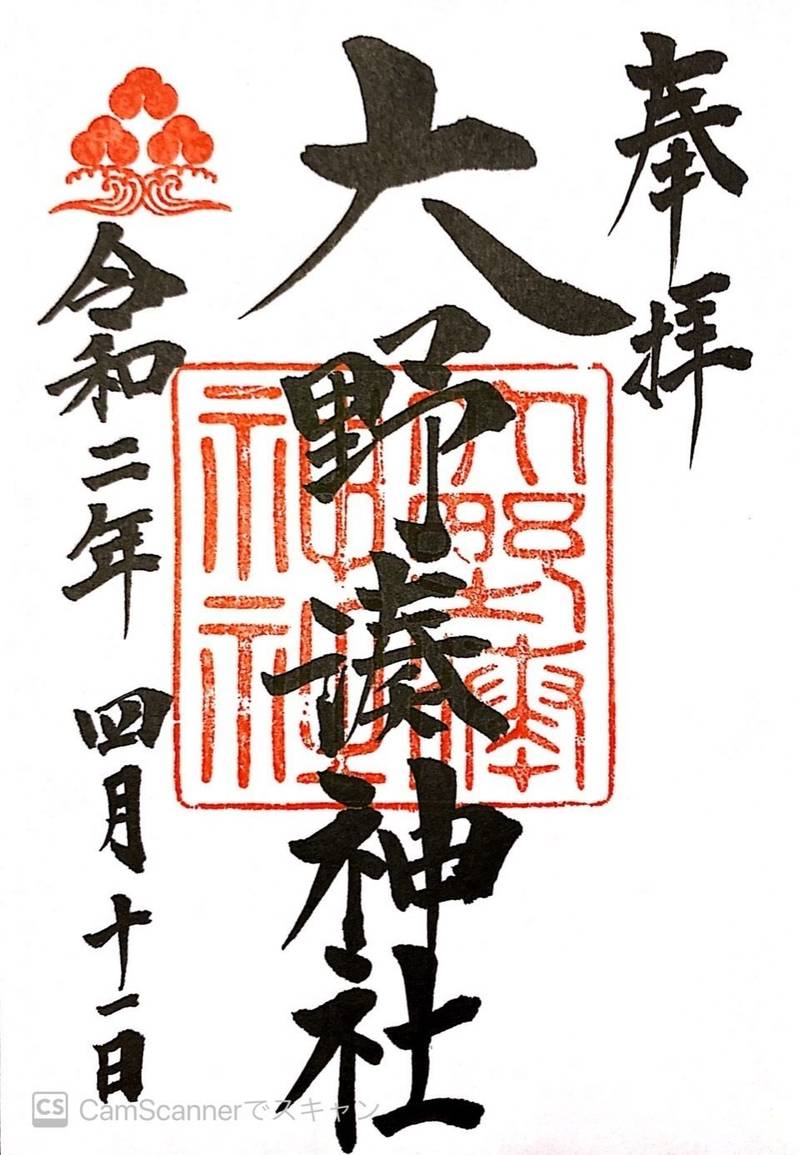 奉拝
大野湊神社
大野湊神社
令和二年 四月十一日
CS CamScannerでスキャン